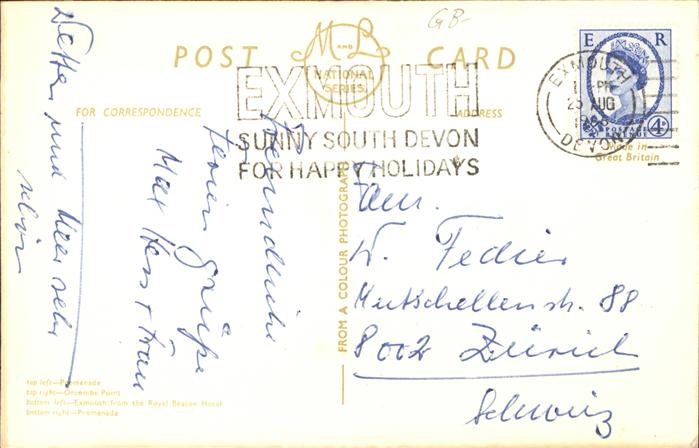 GB-
POST CARD
M AND L
NATIONAL
SERIES
FOR CORRESPONDENCE
ADDRESS
EXMOUTH
SUNNY SOUTH DEVON
FOR HAPPY HOLIDAYS
E R
4D
POSTAGE
REVENUE
EXMOUTH
PM
25 AUG
DEVON
Made in
Great Britain
Freundliche
Ferien Grüße
Max Hess + Frau
Wetter und Meer sehr
schön
FROM A COLOUR PHOTOGRAPH
Fam.
W. Fedier
Mutschellenstr. 88
8002 Zürich
Schweiz
top left—Promenade
top right—Orcombe Point
bottom left—Exmouth from the Royal Beacon Hotel
bottom right—Promenade